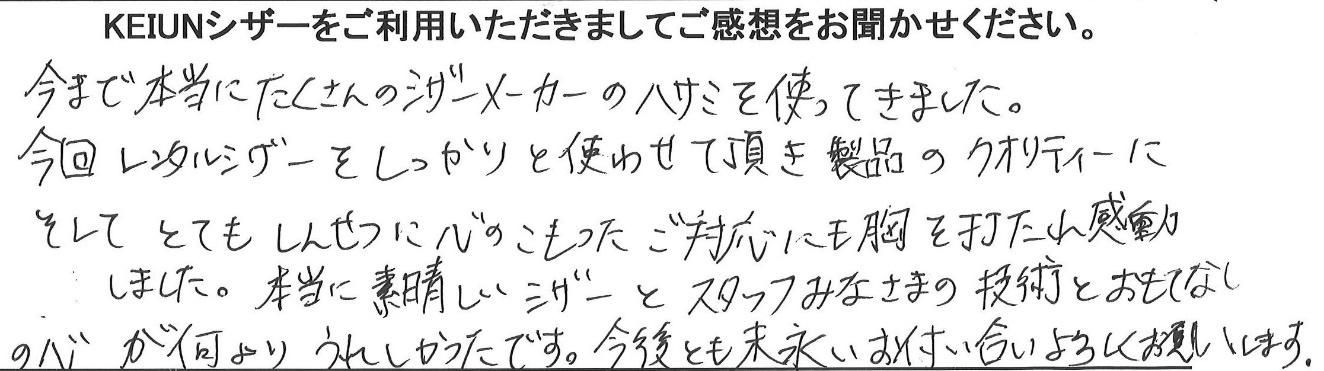 KEIUNシザーをご利用いただきましてご感想をお聞かせください。
今まで本当にたくさんのシザーメーカーのハサミを使ってきました。
今回レンタルシザーをしっかりと使わせて頂き製品のクオリティーに
そしてとてもしんせつに心のこもったご対応にも胸を打たれ感動
しました。本当に素晴しいシザーとスタッフみなさまの技術とおもてなし
の心が何よりうれしかったです。今後とも末永いお付い合いよろしくお願いします。